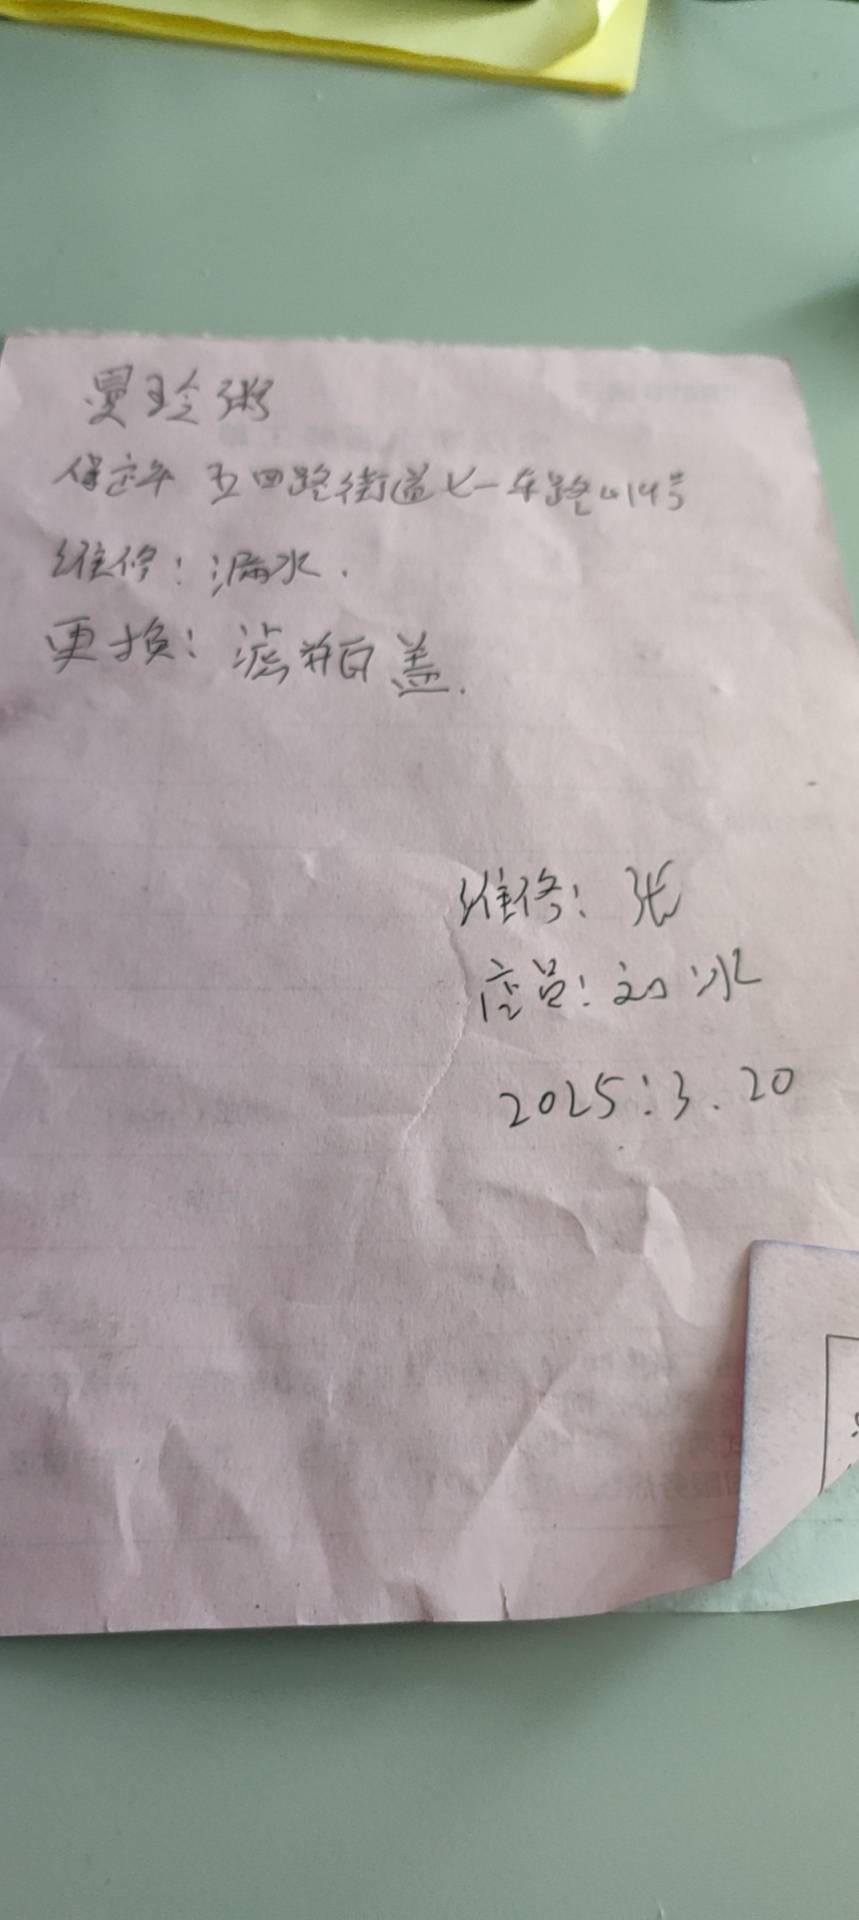 曼玲粥
保定市 五四路街道七一东路414号
维修：漏水.
更换：滤瓶盖.
维修：张
店员：刘冰
2025:3.20